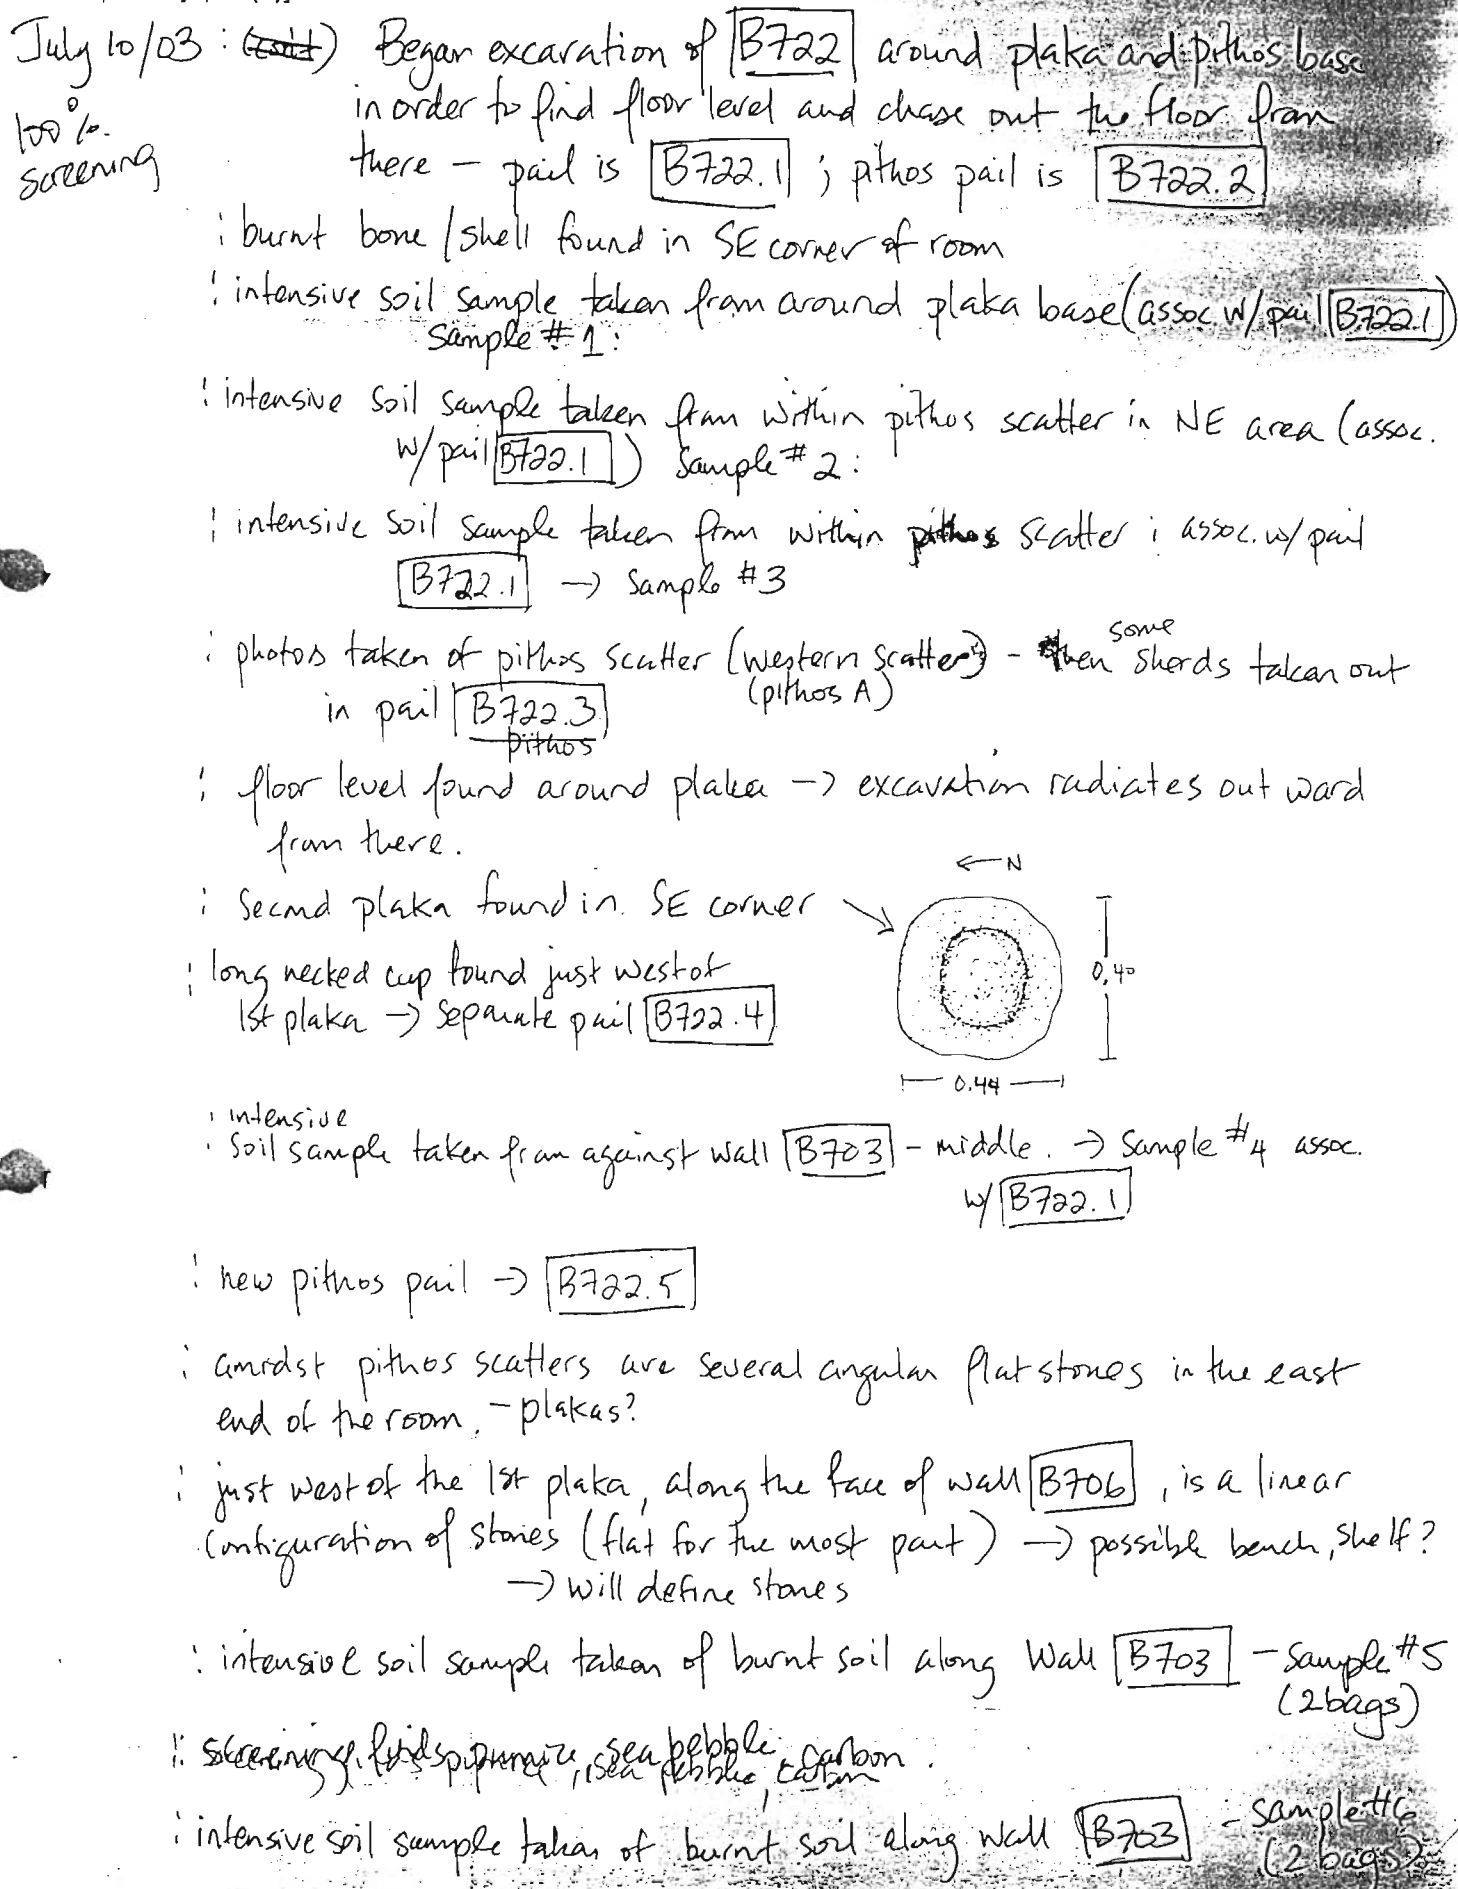 July 10/03 : Began excavation of B722 around plaka and pithos base
100%
screening
in order to find floor level and chase out the floor from
there – pail is B722.1 ; pithos pail is B722.2
: burnt bone / shell found in SE corner of room
: intensive soil sample taken from around plaka base (assoc. w/ pail B722.1)
Sample #1:
: intensive soil sample taken from within pithos scatter in NE area (assoc.
w/ pail B722.1) Sample #2:
: intensive soil sample taken from within pithos scatter ; assoc. w/ pail
B722.1 → Sample #3
: photos taken of pithos scatter (western scatter) – then some sherds taken out
(pithos A)
in pail B722.3
pithos
: floor level found around plaka → excavation radiates out ward
from there.
← N
: Second plaka found in SE corner →
: long necked cup found just west of
1st plaka → separate pail B722.4
0.40
0.44
: intensive
: soil sample taken from against wall B703 – middle. → Sample #4 assoc.
w/ B722.1
: new pithos pail → B722.5
: amidst pithos scatters are several angular flat stones in the east
end of the room. – plakas?
: just west of the 1st plaka, along the face of wall B706, is a linear
configuration of stones (flat for the most part) → possible bench, shelf?
→ will define stones
: intensive soil sample taken of burnt soil along Wall B703 – Sample #5
(2 bags)
: screening finds pumice, sea pebble, carbon.
: intensive soil sample taken of burnt soil along wall B703 – sample #6
(2 bags)